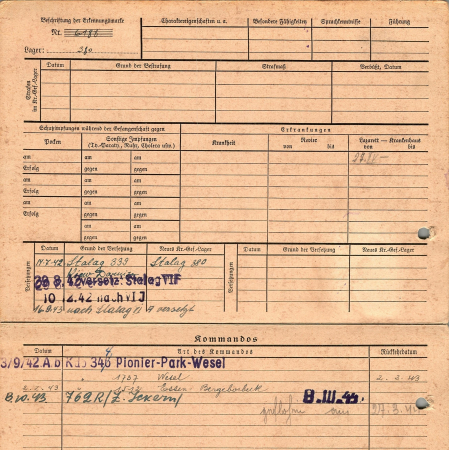 Beschriftung der Erkennungsmarke
Nr. 6186
Lager: 380
Charaktereigenschaften u. a.
Besondere Fähigkeiten
Sprachkenntnisse
Führung
Strafen im Kr.-Gef.-Lager
Datum
Grund der Bestrafung
Strafmaß
Verbüßt, Datum
Schutzimpfungen während der Gefangenschaft gegen
Erkrankungen
Pocken
Sonstige Impfungen
(Ty.-Paraty., Ruhr, Cholera usw.)
Krankheit
Revier
von bis
Lazarett — Krankenhaus
von bis
am am am
Erfolg gegen gegen
am am am
Erfolg gegen gegen
am am am
Erfolg gegen gegen
am am
gegen gegen
Versetzungen
Datum Grund der Versetzung Neues Kr.-Gef.-Lager
Versetzungen
Datum Grund der Versetzung Neues Kr.-Gef.-Lager
Stalag 333 Stalag 380
29 8. 42 versetzt: Stalag VI F
10 2.42 nach VI J
nach Stalag A versetzt
Kommandos
Datum
Art des Kommandos
Rückkehrdatum
3/9/42 346 Pionier-Park-Wesel
1767 Wesel 2. 2. 43
2. 2. 43 1512 Essen Bergeborbeck
8. III. 43
762R
geflohen am